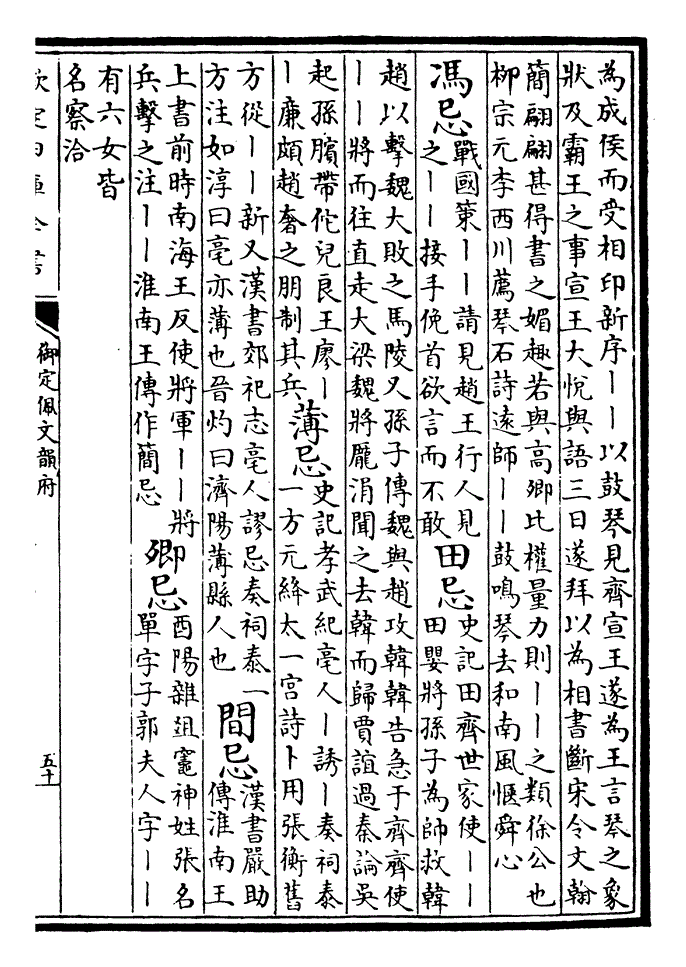 為成侯而受相印新序丨丨以鼓琴見齊宣王遂為王言琴之象
狀及霸王之事宣王大悅與語三日遂拜以為相書斷宋令文翰
簡翩翩甚得書之媚趣若與高卿比權量力則丨丨之類徐公也
柳宗元李西川薦琴石詩遠師丨丨鼓鳴琴去和南風愜舜心
馮忌
戰國策丨丨請見趙王行人見
之丨丨接手俛首欲言而不敢
田忌
史記田齊世家使丨丨
田嬰將孫子為師救韓
趙以擊魏大敗之馬陵又孫子傳魏與趙攻韓韓告急于齊齊使
丨丨將而往直走大梁魏將龐涓聞之去韓而歸賈誼過秦論吳
起孫臏帶佗兒良王廖丨
丨廉頗趙奢之朋制其兵
薄忌
史記孝武紀亳人丨誘丨奏祠泰
一方元絳太一宮詩卜用張衡舊
方從丨丨新又漢書郊祀志亳人謬忌奏祠泰一
方注如淳曰亳亦薄也晉灼曰濟陽薄縣人也
間忌
漢書嚴助
傳淮南王
上書前時南海王反使將軍丨丨將
兵擊之注丨丨淮南王傳作簡忌
卿忌
酉陽雜俎竈神姓張名
單字子郭夫人字丨丨
有六女皆
名察洽
欽定四庫全書
御定佩文韻府
五十